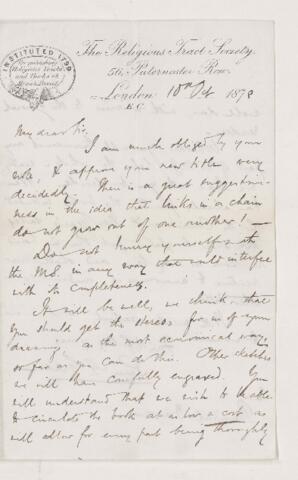 INSTITUTED 1799
The Religious Tract Society.
56, Paternoster Row.
London 1878
E.C.
My dear Sir,
I am much obliged by your
note, & approve your new title very
decidedly. There is a great suggestive-
ness in the idea that links in a chain
do not grow out of one another! —
Do not hurry yourself with
the MS. in any way that would interfere
with its completeness.
It will be well, we think, that
you should get the stereos for us of your
drawings, as the most economical way,
so far as you can do this. Other sketches
we will have carefully engraved. You
will understand that we wish to be able
to circulate the book at as low a cost as
will allow for every part being thoroughly